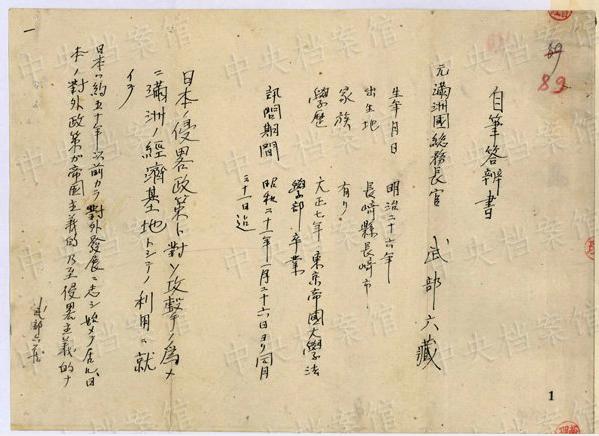 自筆答辯書
元滿洲國總務長官 武部六藏
生年月日 明治二十六年
出生地 長崎縣長崎市
家族 有リ
學歷 大正七年東京帝國大學法
學部卒業
訊問期間 昭和二十一年一月二十六日ヨリ同月
三十一日迄
日本ノ侵畧政策ト對ソ攻擊ノ爲メ
ニ滿洲ノ經濟基地トシテノ利用ニ就
イテ
日本ハ約五十年以前カラ對外發展ニ志シ始メテ居ル、日
本ノ對外政策ガ帝國主義的乃至侵畧主義的ナ
武部六藏
一
89
1
中央档案馆